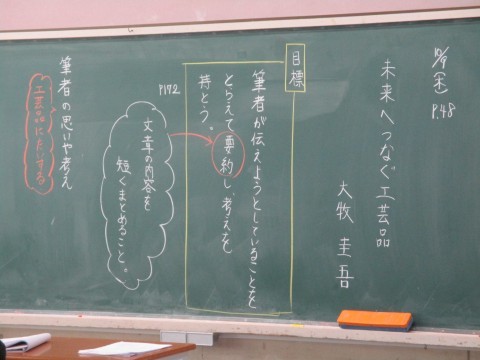 10/9(木)
P.48
未来へつなぐ工芸品
大牧 圭吾
目標
筆者が伝えようとしていることを
とらえて要約し、考えを
持とう。
P172
文章の内容を
短くまとめること。
筆者の思いや考え
工芸品にたいする